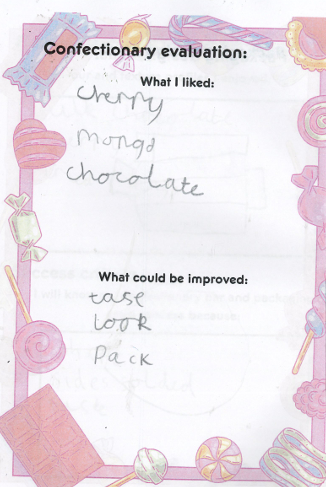 Confectionary evaluation:
What I liked:
cherry
mongo
chocolate
What could be improved:
tase
look
pack